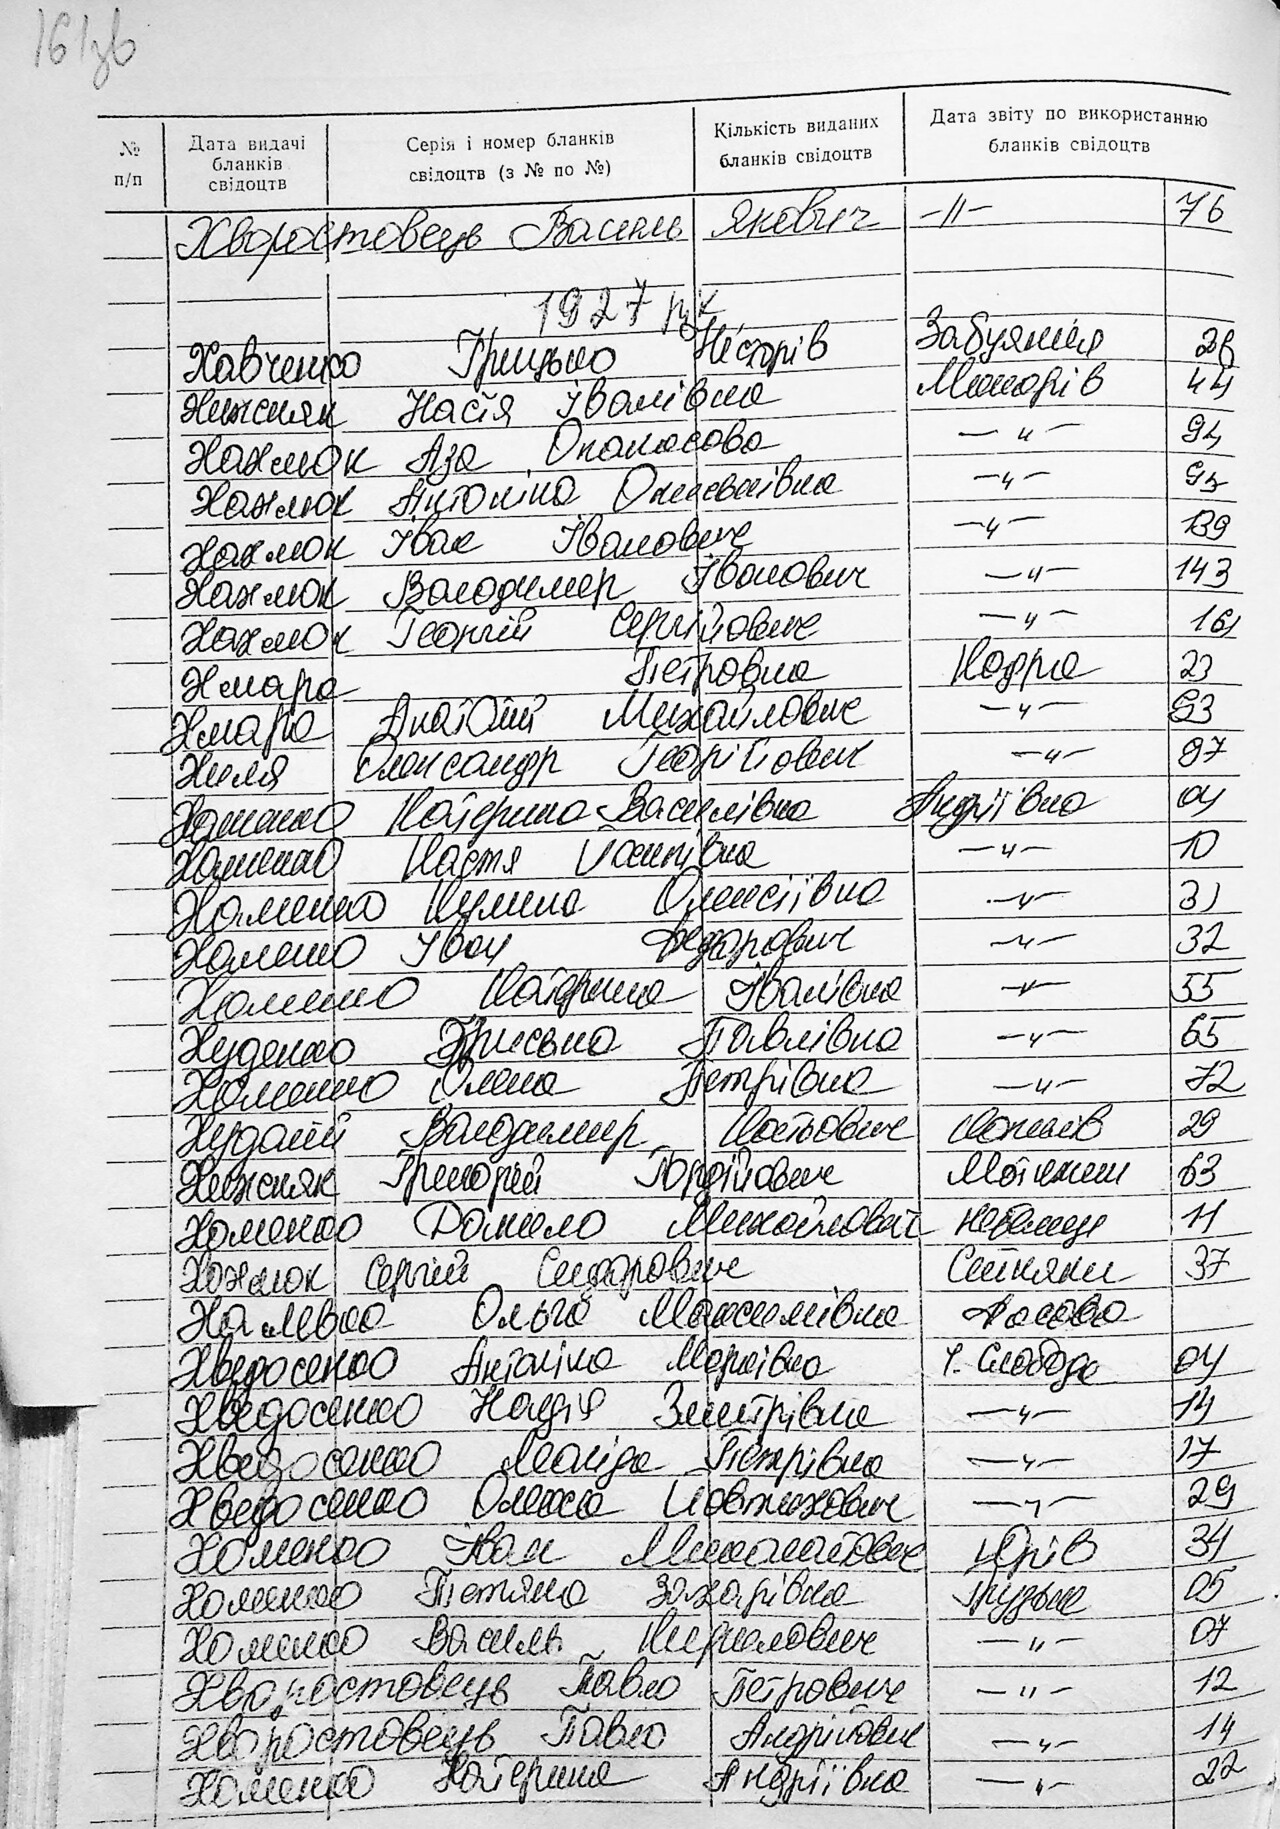 161зв
№ п/п
Дата видачі бланків свідоцтв
Серія і номер бланків свідоцтв (з № по №)
Кількість виданих бланків свідоцтв
Дата звіту по використанню бланків свідоцтв
Хворостовець Василь Якович -"- 76
1927 рік
Хавченко Грицько Несторів 28
Хижняк Настя Іванівна Макарів 44
Хахлюк Аза Опанасова -"- 94
Хахлюк Антоніна -"- 95
Хахлюк Іван Іванович -"- 139
Хахлюк Володимир Іванович -"- 143
Хахлюк Георгій Сергійович -"- 161
Хмара Петровна 23
Хмара Анатолій Михайлович -"- 93
Хиля Олександр Георгійович -"- 97
Хоменко Катерина Василівна Андріївка 04
Хоменко Настя Йосипівна -"- 10
Хоменко Килина Олексіївна -"- 31
Хоменко Іван Федорович -"- 32
Хоменко Катерина Іванівна -"- 55
Худенко Павлівна -"- 65
Хоменко Олена Петрівна -"- 72
Володимир 29
Хижняк Григорій Гордійович Мотижин 63
Хоменко Данило Михайлович 11
Хахлюк Сергій Сидорович Ситняки 37
Ольга Максимівна Фасова
Хведосенко Антоніна Марківна Ч. Слобода 04
Хведосенко Надія Змитрівна -"- 14
Хведосенко Петрівна -"- 17
Хведосенко Олекса Явтихович -"- 29
Хоменко Іван Юрів 34
Хоменко Тетяна Захарівна Грузьке 05
Хоменко Василь Кирилович -"- 07
Хворостовець Павло Петрович -"- 12
Хворостовець Павло Андрійович -"- 14
Хоменко Катерина Андріївна -"- 22